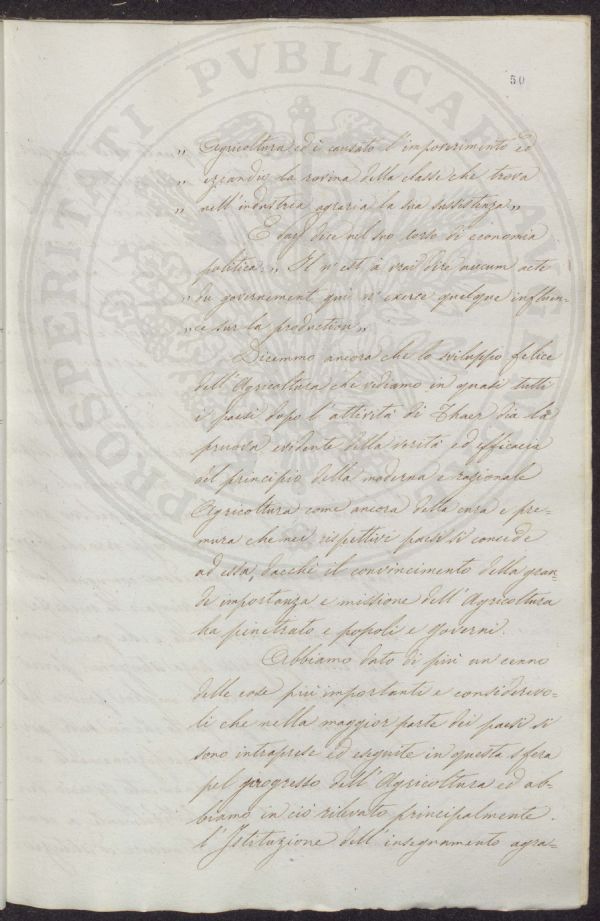 50
„ Agricoltura ed i causato l'impoverimento ed
„ eziandio la rovina della classe che trova
„ nell'industria agraria la sua sussistenza„
E say dice nel suo corso di economia
politica: „ Il n'est à vrai dire aucum acte
„ du governement qui n'exerce quelque influen-
„ ce sur la production„
Dicemmo ancora che lo sviluppo felice
dell'Agricoltura che vediamo in quasi tutti
i paesi dopo l'attività di Thaer dia la
pruova evidente della verità ed efficacia
del principio della moderna e razionale
Agricoltura come ancora della cura e pre-
mura che nei rispettivi paesi si concede
ad essa, dacchè il convincimento della gran-
de importanza e missione dell'Agricoltura
ha penetrato e popoli e governi.
Abbiamo dato di più un cenno
delle cose più importanti e considerevo-
li che nella maggior parte dei paesi si
sono intraprese ed eseguite in questa sfera
pel progresso dell'Agricoltura ed ab-
biamo in ciò rilevato principalmente
l'Istituzione dell'insegnamento agra-
PROSPERITATI PVBLICAE